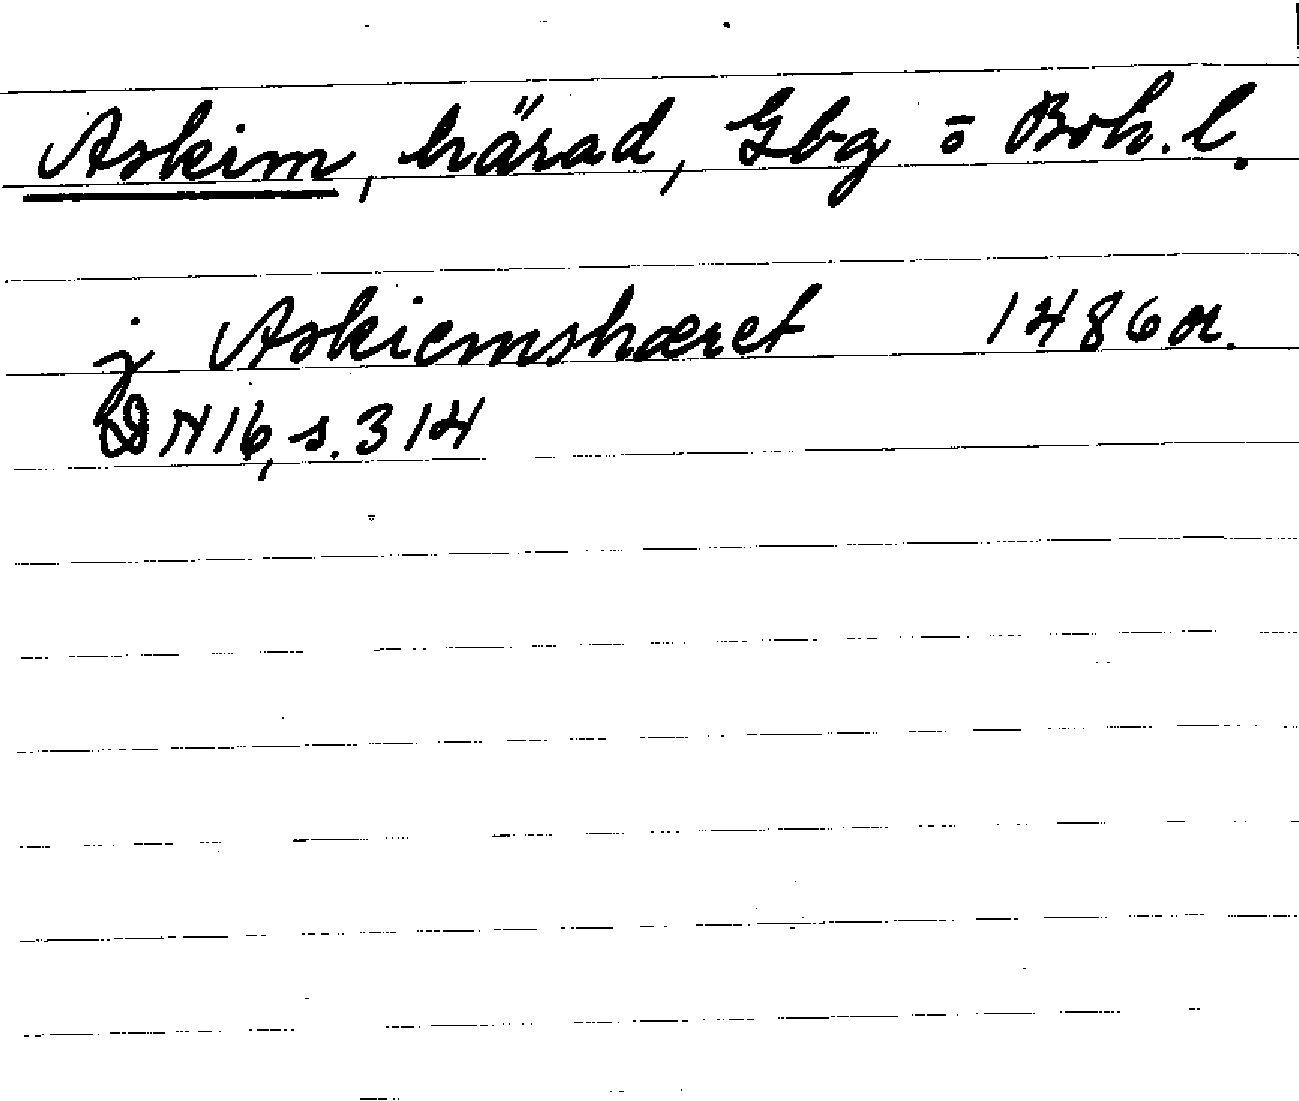 Askim, härad, Gbg ō Boh. l.
j Askiemshæret 1486 or.
DN 16, s. 314